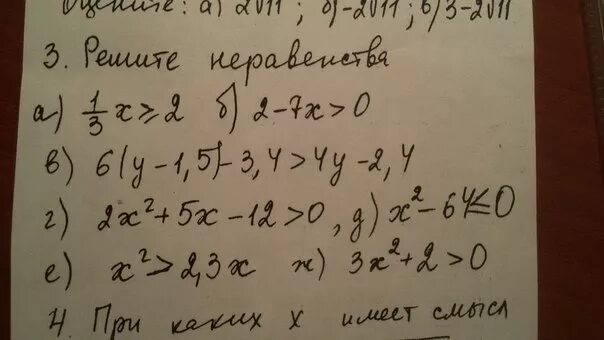 Оцените: а) 2√11 ; б) -2√11 ; в) 3-2√11
3. Решите неравенства
а) 1/3 x ≥ 2 б) 2-7x>0
в) 6(y-1,5)-3,4>4y-2,4
г) 2x²+5x-12>0, д) x²-64≤0
е) x²>2,3x ж) 3x²+2>0
4. При каких х имеет смысл